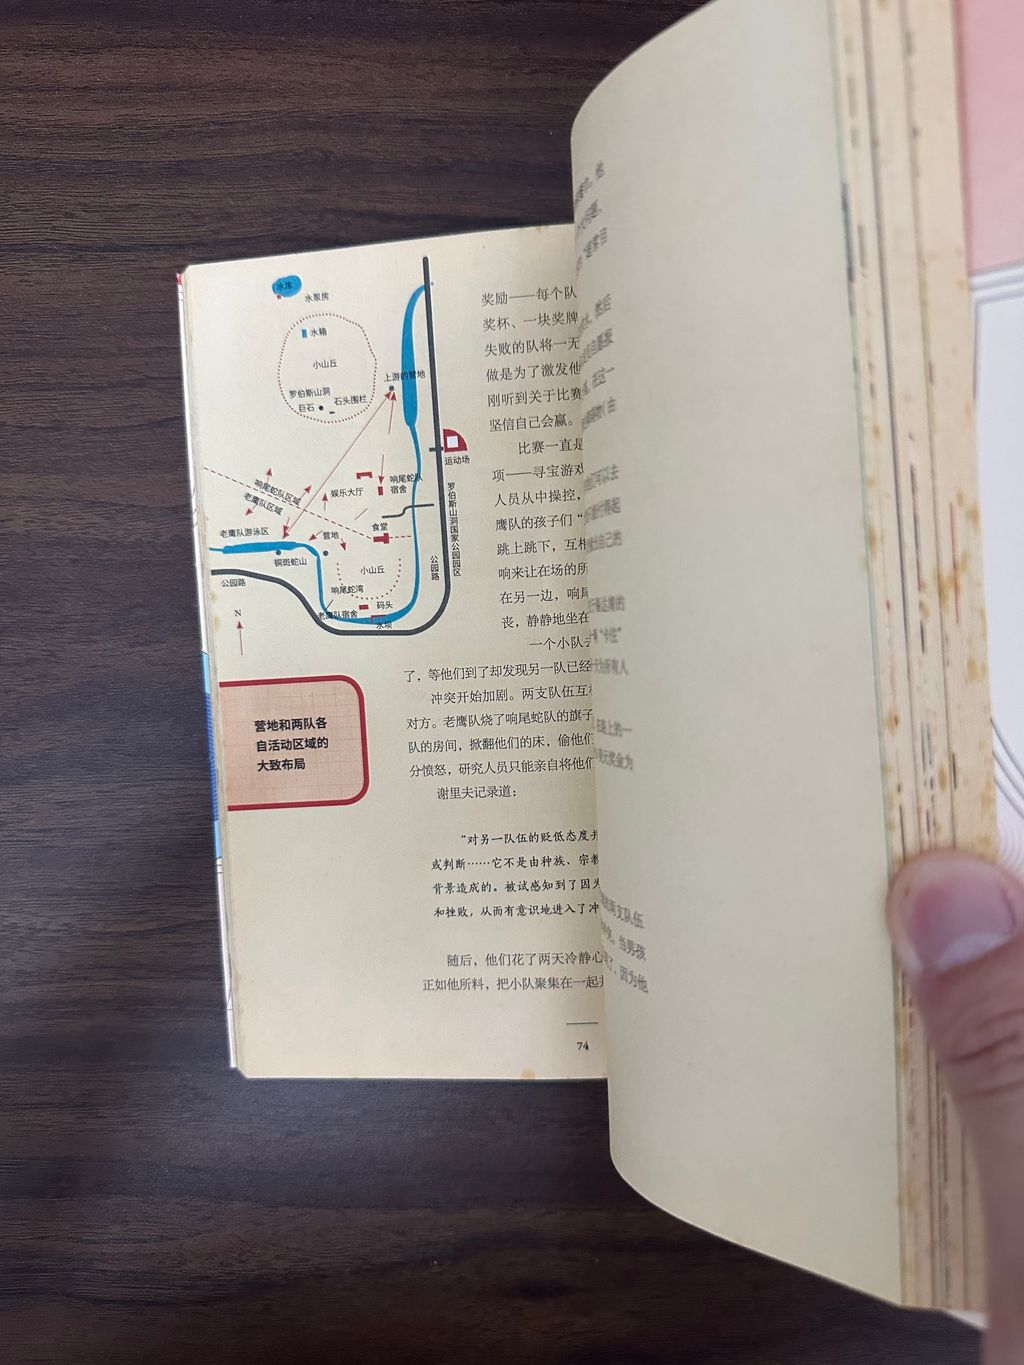 水库
水泵房
水箱
小山丘
上游的营地
罗伯斯山洞
巨石
石头围栏
运动场
响尾蛇队
宿舍
娱乐大厅
响尾蛇队区域
老鹰队区域
罗伯斯山洞国家公园园区
老鹰队游泳区
营地
食堂
铜斑蛇山
小山丘
公园路
公园路
响尾蛇湾
码头
老鹰队宿舍
水坝
N
营地和两队各
自活动区域的
大致布局
奖励——每个队
奖杯、一块奖牌
失败的队将一无
做是为了激发他
刚听到关于比赛
坚信自己会赢。
比赛一直是
项——寻宝游戏
人员从中操控,
鹰队的孩子们“
跳上跳下,互相
响来让在场的所
在另一边,响尾
丧,静静地坐在
一个小队
了,等他们到了却发现另一队已经
冲突开始加剧。两支队伍互相
对方。老鹰队烧了响尾蛇队的旗子
队的房间,掀翻他们的床,偷他们
分愤怒,研究人员只能亲自将他们
谢里夫记录道:
“对另一队伍的贬低态度并
或判断……它不是由种族、宗教
背景造成的。被试感知到了因为
和挫败,从而有意识地进入了冲
随后,他们花了两天冷静心
正如他所料,把小队聚集在一起
74
两支队伍
当男孩
因为他